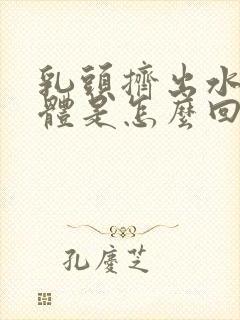 乳頭擠出水
體是怎麼回
孔慶芝